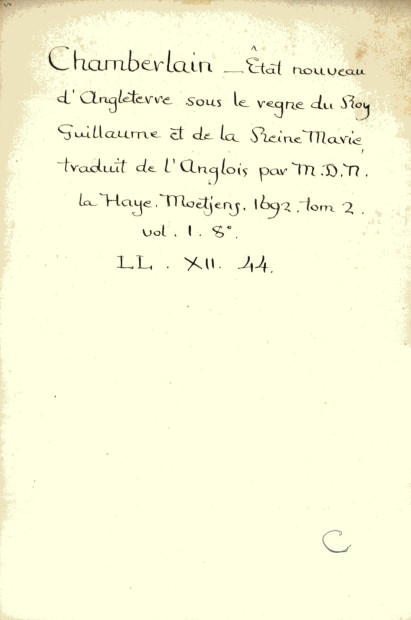 Chamberlain — État nouveau
d'Angleterre sous le regne du Roy
Guillaume et de la Reine Marie,
traduit de l'Anglois par M.D.N.
la Haye. Moetjens. 1692. tom 2.
vol. 1. 8°.
LL. XII. 44.
C